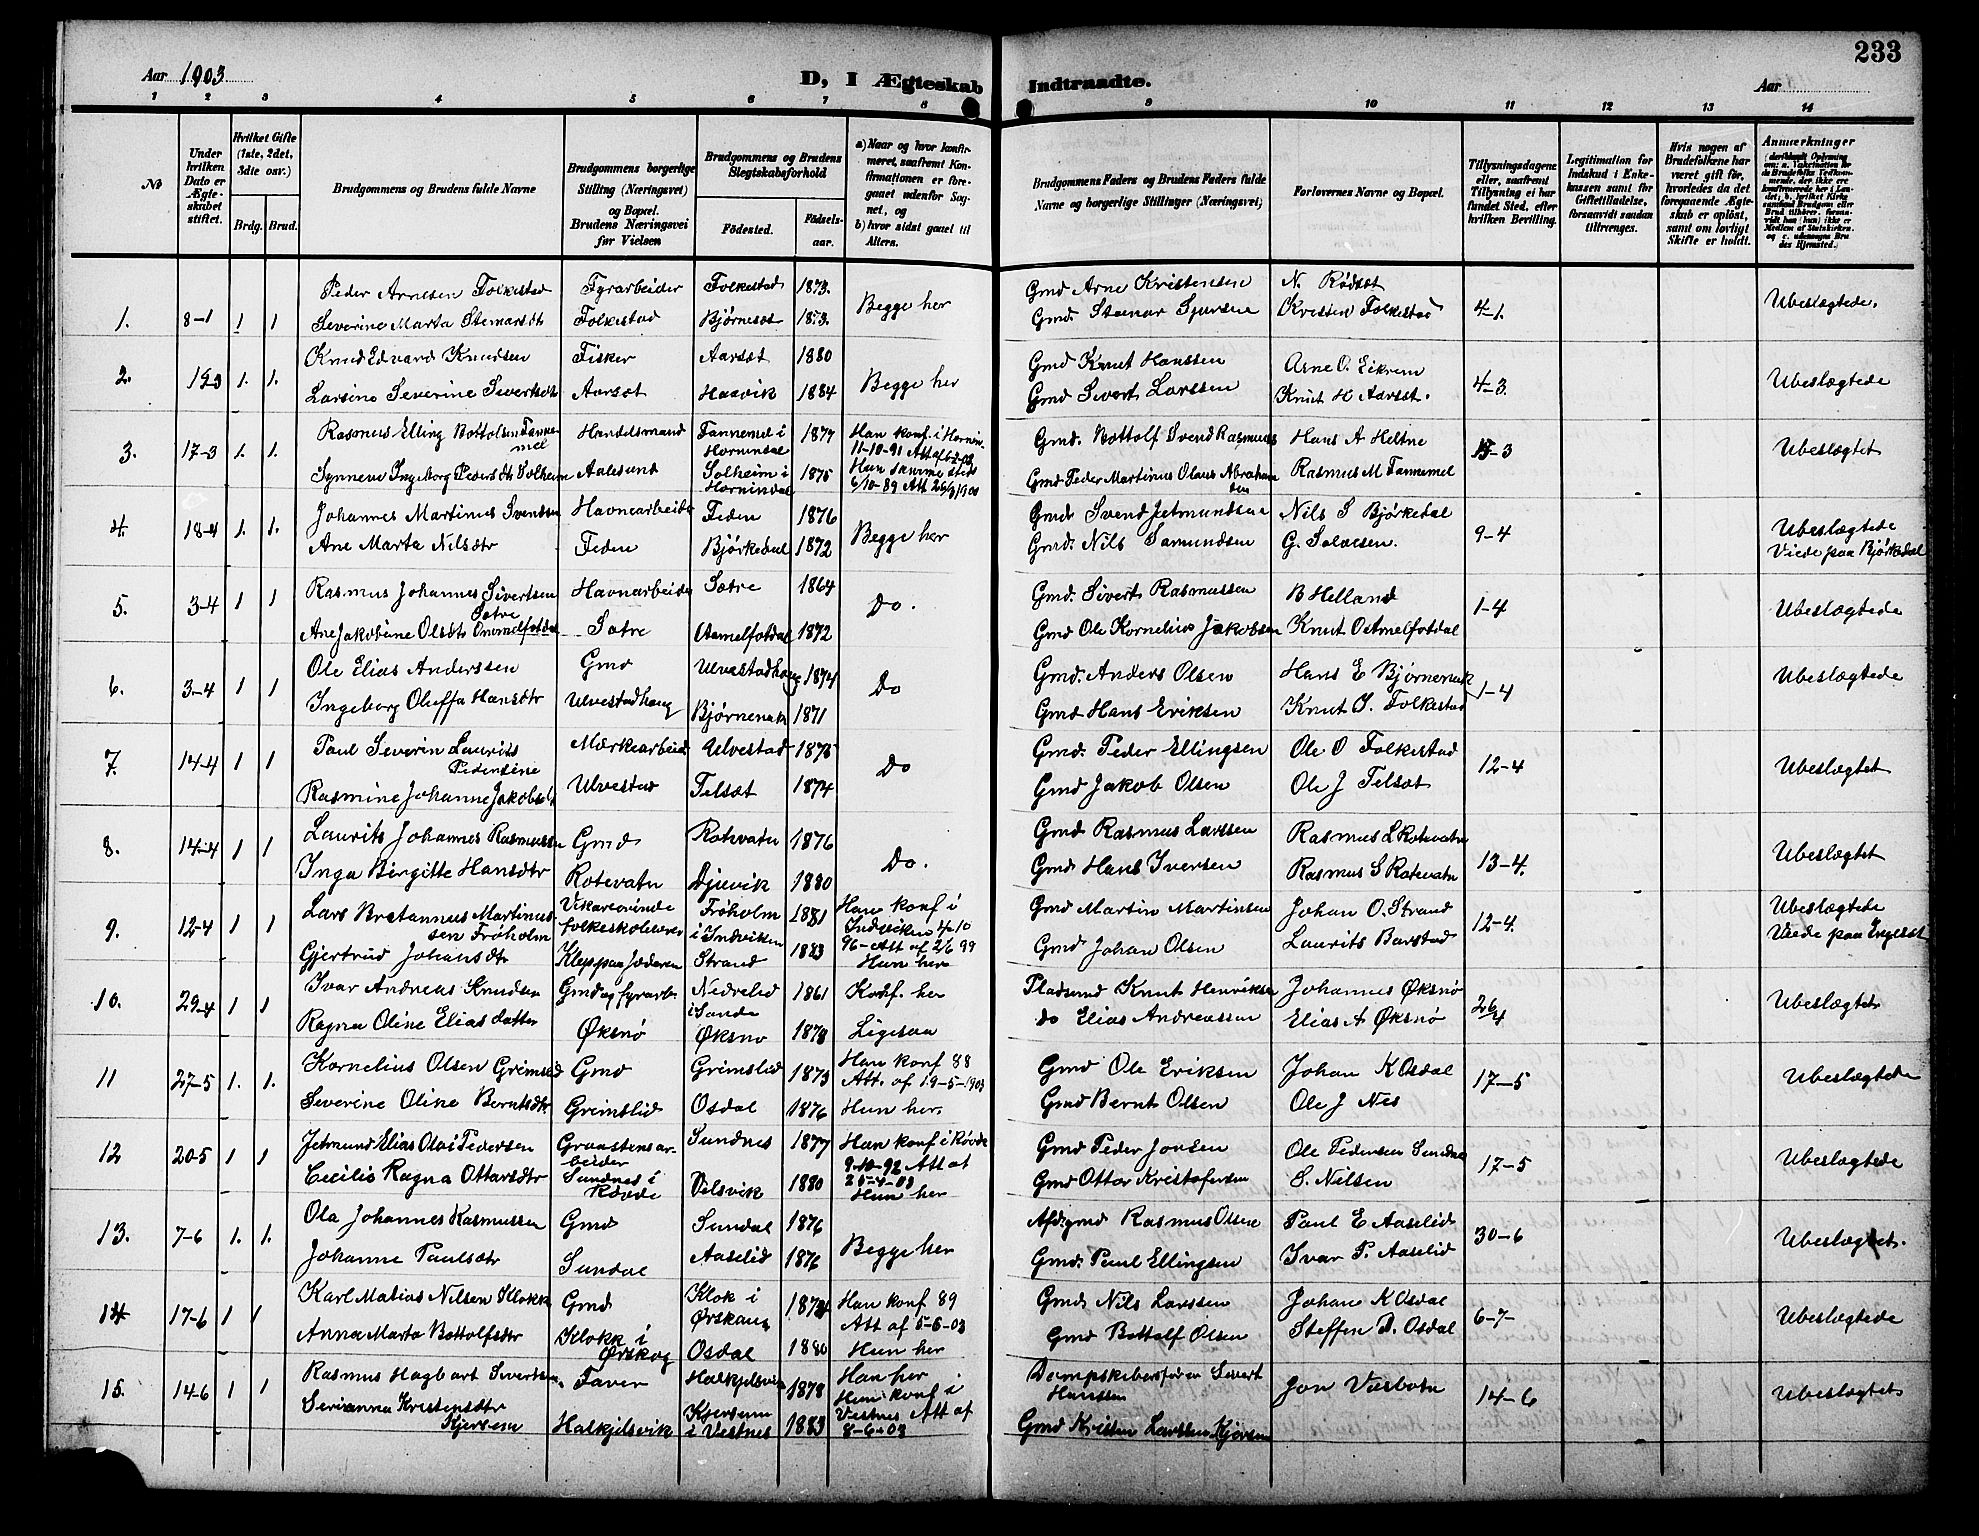 233
Aar 1903
D, I Ægteskab Indtraadte.
Aar
1 2 3 4 5 6 7 8 9 10 11 12 13 14
No
Under hvilken Dato er Ægteskabet stiftet.
Hvilket Gifte (1ste, 2det, 3dte osv.)
Brdg. Brud.
Brudgommens og Brudens fulde Navne
Brudgommens borgerlige Stilling (Næringsvei) og Bopæl. Brudens Næringsvei før Vielsen
Brudgommens og Brudens Slegtskabsforhold
Fødested.
Fødselsaar.
a) Naar og hvor konfirmeret, saafremt Konfirmationen er foregaaet udenfor Sognet, og
b) hvor sidst gaaet til Alters.
Brudgommens Faders og Brudens Faders fulde Navne og borgerlige Stillinger (Næringsvei)
Forlovernes Navne og Bopæl.
Tillysningsdagene eller, saafremt Tillysning ei har fundet Sted, efter hvilken Bevilling.
Legitimation for Indskud i Enkekassen samt for Giftetilladelse, forsaavidt saadan tiltrænges.
Hvis nogen af Brudefolkene har været gift før, hvorledes da det foregaaende Ægteskab er opløst, samt om lovligt Skifte er holdt.
Anmærkninger
1. 8-1 1 1 Peder Arnesen Folkestad Fyrarbeider Folkestad 1873. Begge her Gmd Arne Kristensen N. Rødsæt 4-1. Ubeslægtede.
Severine Marta Stenarsdtr Folkestad Bjørneset 1873. Gmd. Stenar Sjursen Kristen Folkestad
2. 15-3 1. 1. Knud Edvard Knudsen Fisker Aarsæt 1880 Begge her Gmd Knut Hanssen Arne O. Eikrem 4-3. Ubeslægtede
Larsine Severine Sivertsdtr Aarsæt Haavik 1884 Gmd Sivert Larssen Knut H Aarsæt.
3. 17-3 1. 1. Rasmus Elling Bottolfsen Tannemel Handelsmand Tannemel i Hornindal 1877 Han konf. i Hornin. 11-10-91 Gmd. Bottolf Svend Rasmus Hans A Heltne Ubeslægtet
Synneve Ingeborg Pedersdtr Solheim Aalesund Solheim i Hornindal 1875 Hun samme sted 6/10-89 Att 26/9 1900 Gmd Peder Martinus Olaus Abrahamsen Rasmus M Tannemel
4. 18-4 1. 1. Johannes Martinus Svendsen Havnearbeide Feden 1876 Begge her Gmd. Svend Jetmundsen Nils S Bjørkedal 9-4 Ubeslægtede
Ane Marta Nilsdtr Feden Bjørkedal 1872 Gmd. Nils Samundsen G. Solvesen. Viede paa Bjørkedal
5. 3-4 1 1 Rasmus Johannes Sivertsen Sætre Havnarbeider Sætre 1864 Do. Gmd. Sivert Rasmussen B Helland 1-4 Ubeslægtede
Ane Jakobine Olsdtr Sætre Aamelfotdal 1872 Gmd Ole Kornelius Jakobsen Knut O Aamelfotdal
6. 3-4 1 1 Ole Elias Anderssen Gmd Ulvestadhaug 1874 Do Gmd. Anders Olsen Hans E Bjørnenak 1-4 Ubeslægtede
Ingeborg Oluffa Hansdtr Ulvestadhaug Bjørnenak 1871 Gmd Hans Eriksen Knut J. Folkestad
7. 14-4 1 1 Paul Severin Laurits Mærkearbeid Ulvestad 1875 Do Gmd. Peder Ellingsen Ole O Folkestad 12-4 Ubeslægtet
Rasmine Johanne Jakobsdt Ulvestad Telsæt 1874 Gmd Jakob Olsen Ole J Telsæt
8. 14-4 1 1 Laurits Johannes Rasmussen Gmd Rotevatn 1876 Do. Gmd Rasmus Larssen Rasmus L Rotevatn 13-4. Ubeslægtet
Inga Birgitte Hansdtr Rotevatn Djuvik 1880 Gmd Hans Iversen Rasmus S Rotevatn
9. 12-4 1 1 Lars Bretannus Martinussen Frøholm Vikarierende folkeskolelærer Frøholm i Indviken 1881 Han konf i Indviken 4/10 96- Att af 2/6 99 Gmd Martin Martinsen Johan O. Strand 12-4. Ubeslægtede
Gjertrud Johansdtr Klep paa Jæderen Strand 1883 Hun her Gmd Johan Olsen Laurits Barstad
10. 29-4 1 1 Ivar Andreas Knudsen Gmd og fyrarb. Nedrelid i Sande 1861 Konf. her Pladsmd Knut Henriksen Johannes Øksnø 26/4 Ubeslægtet
Ragna Oline Elias datter Øksnø Øksnø 1878 Ligesaa do Elias Andreassen Elias A Øksnø
11 27-5 1. 1. Kornelius Olsen Grimslid Gmd Grimslid 1873 Han konf 88 Att. af 19-5-1903 Gmd Ole Eriksen Johan K Osdal 17-5 Ubeslægtede
Severine Oline Berntsdtr Grimslid Osdal 1876 Hun her. Gmd Bernt Olsen Ole J Nes
12 20-5 1 1 Jetmund Elias Olai Pedersen Graastensarbeider Sundnes 1877 Han konf i Røvde 9-10-92 Att af 25-4-03 Gmd Peder Jonsen Ole Pedersen Sundnes 17-5 Ubeslægtede
Cecilie Ragna Ottarsdtr Sundnes i Røvde Velsvik 1880 Hun her Gmd Ottar Kristofersen S. Nilsen
13. 7-6 1. 1. Ola Johannes Rasmussen Gmd Sundal 1876 Begge her Afd. gmd Rasmus Olsen Paul E Aaselid 30-6 Ubeslægtet.
Johanne Paulsdtr Sundal Aaselid 1876 Gmd. Paul Ellingsen Ivar P. Aaselid
14 17-6 1 1 Karl Matias Nilsen Klokk Gmd Klok i Ørskaug Han konf 89 Att af 5-6-03 Gmd Nils Larssen Johan K Osdal 6-7- Ubeslægtede
Anna Marta Bottolfsdtr Klokk i Ørskog Osdal 1880 Hun her Gmd Bottolf Olsen Steffen D. Osdal
15. 14-6 1 1 Rasmus Hagbart Sivertsen Farver Halkjelsvik 1878 Han her Dampskibsfører Sivert Hanssen Jon Vasbotn 14-6 Ubeslægtet
Serianna Kristensdtr Kjersem Halkjelsvik Kjersem i Vestnes 1883 Hun konf i Vestnes Att af 8-6-03 Gmd Kristen Larssen Kjersem